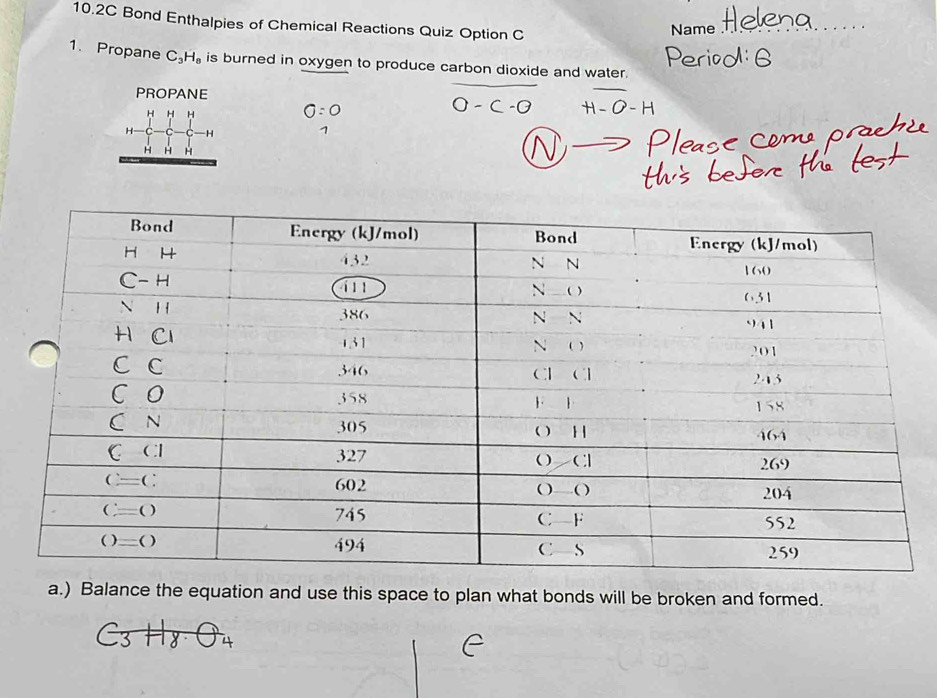 10.2C Bond Enthalpies of Chemical Reactions Quiz Option C
Name Helena
Period: 6
1. Propane C₃H₈ is burned in oxygen to produce carbon dioxide and water.
PROPANE
H H H
H-C-C-C-H
H H H
O=O
1
O-C-O
H-O-H
N → Please come practice
this before the test
Bond Energy (kJ/mol) Bond Energy (kJ/mol)
H H 432 N N 160
C-H 411 N=O 631
N H 386 N N 941
H Cl 431 N O 201
C C 346 Cl Cl 243
C O 358 F F 158
C N 305 O H 464
C Cl 327 O Cl 269
C=C 602 O-O 204
C=O 745 C-F 552
O=O 494 C-S 259
a.) Balance the equation and use this space to plan what bonds will be broken and formed.
C3 H8 O4
e